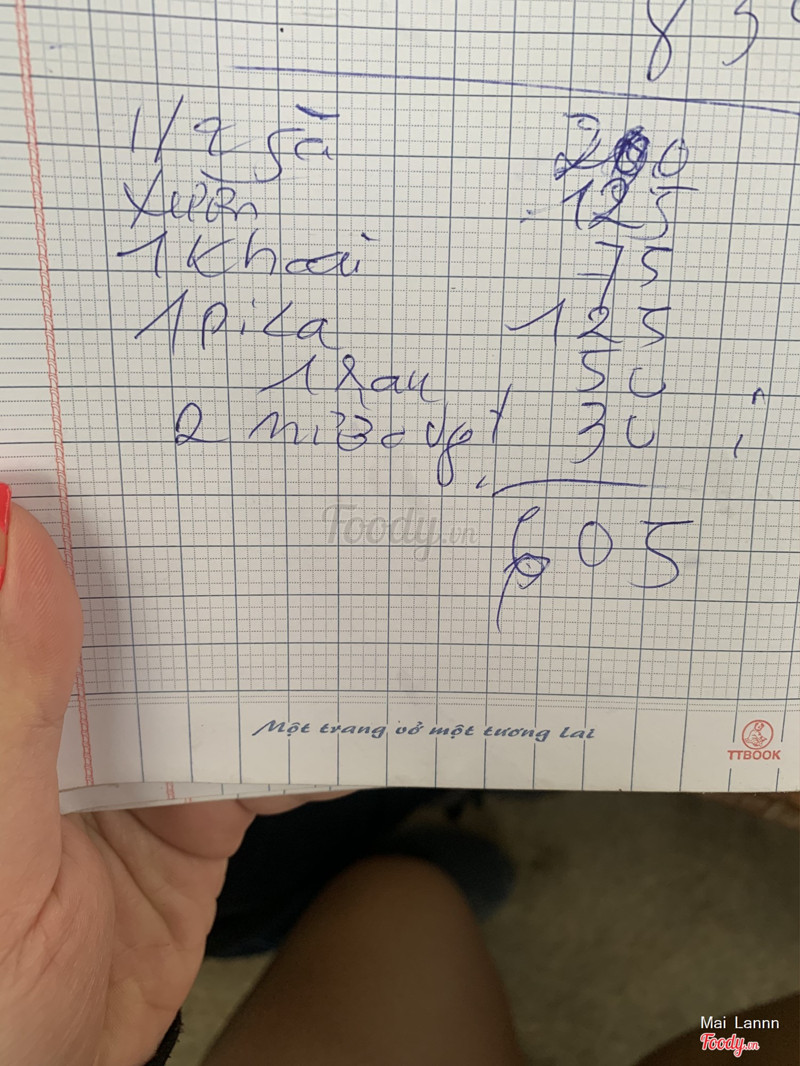 839
1/2 gà 200
Xườn 125
1 Khoai 75
1 piza 125
1 Rau 50
2 nước ngọt 30
605
Foody.vn
Một trang vở một tương lai
TTBOOK
Mai Lannn
Foody.vn